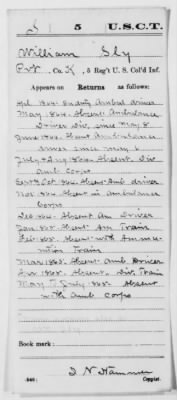 S 5 U.S.C.T.
William Sly
Pvt, Co. K, 5 Reg't U. S. Col'd Inf.
Appears on Returns as follows:
1864. On duty Ambul driver
May 1864. Absent. Ambulance
Driver Div. since May 8
June 1864. Absent Ambulance
driver since May
July & Aug 1864. Absent Div
Amb Corps
Sept & Oct 1864. Absent. Amb driver
Nov. 1864. Absent in Ambulance
Corps
Dec 1864. Absent Am Driver
Jan 1865. Absent. Am Train
Feb. 1865. Absent with Ammu-
nition Train
Mar 1865. Absent Amb Driver
Apr 1865. Absent. Div. Train
May to July 1865. Absent
with Amb Corps
Book mark:
D N Hammer
(546) Copyist.